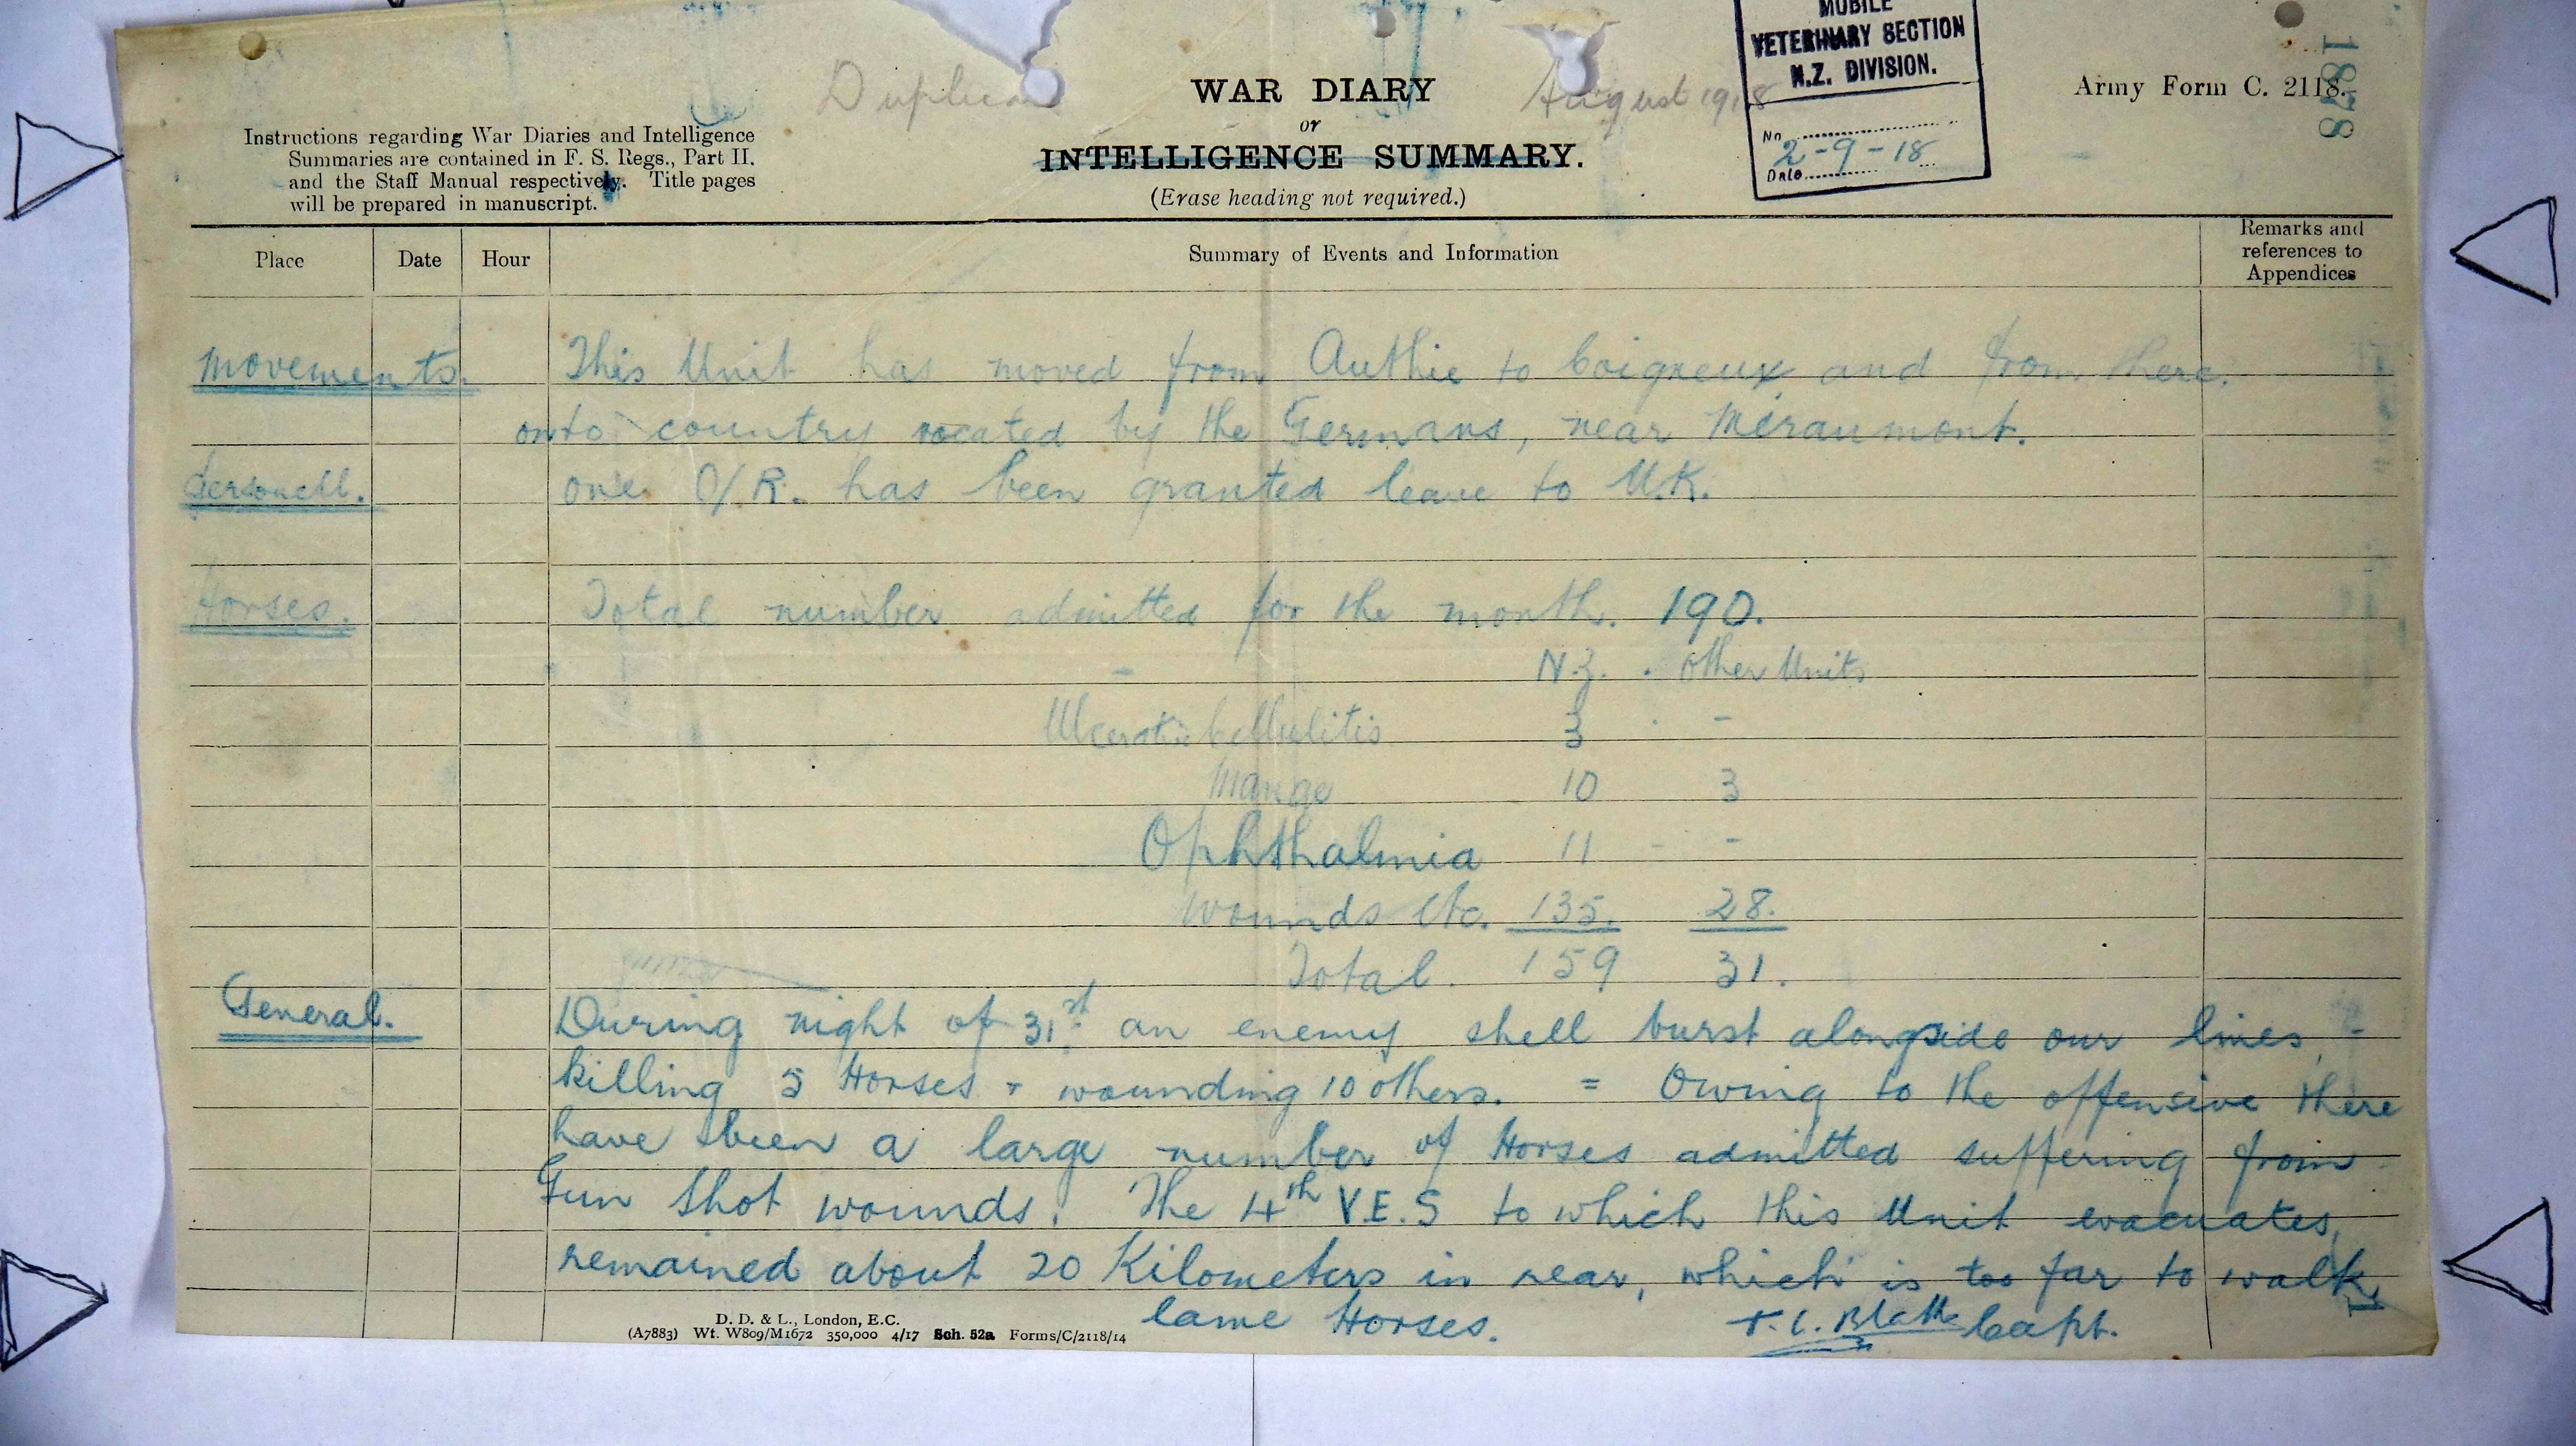 Duplica
WAR DIARY
or
INTELLIGENCE SUMMARY.
(Erase heading not required.)
August 1918
MOBILE
VETERINARY SECTION
N.Z. DIVISION.
No
2-9-18
Date
Army Form C. 2118.
1848
Instructions regarding War Diaries and Intelligence
Summaries are contained in F. S. Regs., Part II.
and the Staff Manual respectively. Title pages
will be prepared in manuscript.
Place Date Hour Summary of Events and Information Remarks and references to Appendices
Movements. This Unit has moved from Authie to Coigneux and from there.
onto country vocated by the Germans, near Meraumont.
Personell. one O/R. has been granted leave to U.K.
Horses. Total number admitted for the month. 190.
N.Z. . other Units
Ulcerative Cellulitis 3 -
Mange 10 3
Ophthalmia 11 - -
Wounds etc. 135. 28.
Total. 159 31.
General. During night of 31st. an enemy shell burst alongside our lines, -
killing 5 Horses + wounding 10 others. = Owing to the offensive there
have been a large number of Horses admitted suffering from
Gun Shot wounds. The 4th V.E.S to which this Unit evacuates,
remained about 20 Kilometers in rear, which is too far to walk
lame Horses. Capt.
D. D. & L., London, E.C.
(A7883) Wt. W809/M1672 350,000 4/17 Sch. 52a Forms/C/2118/14